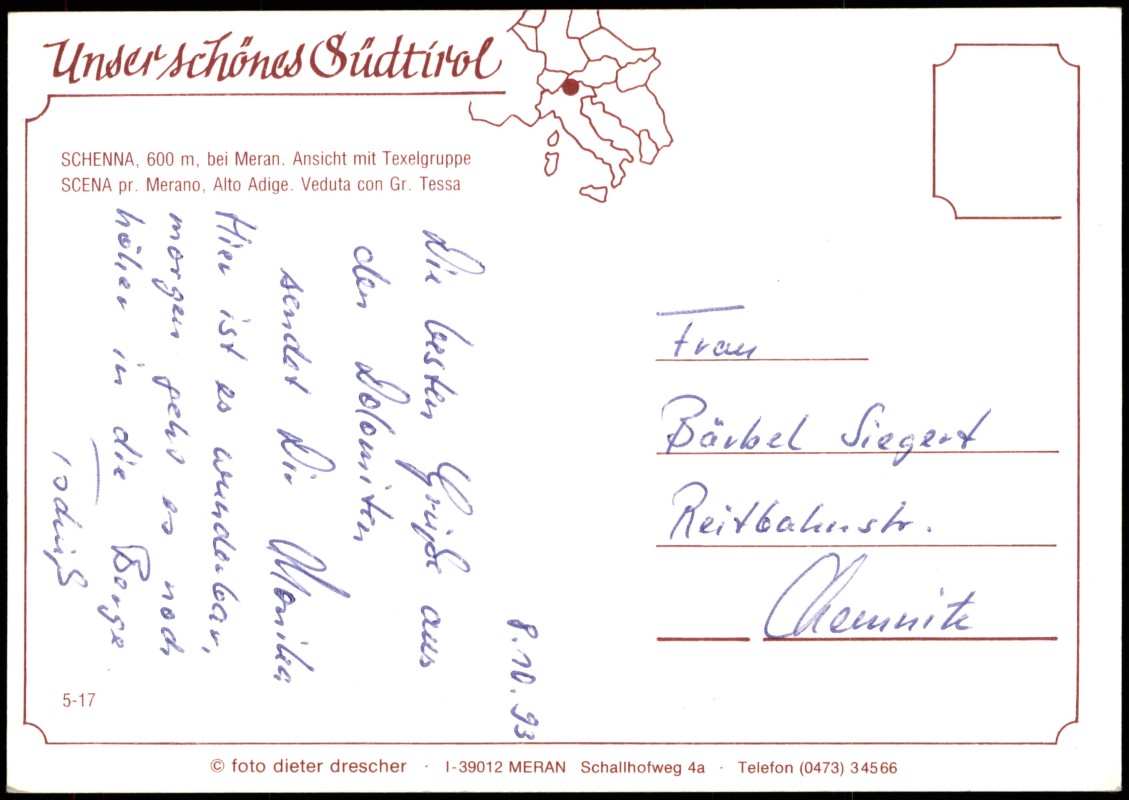 Unser schönes Südtirol
SCHENNA, 600 m, bei Meran. Ansicht mit Texelgruppe
SCENA pr. Merano, Alto Adige. Veduta con Gr. Tessa
8.10.93
Die besten Grüße aus
den Dolomiten
sendet Dir Monika
Hier ist es wunderbar,
morgen gehts es noch
höher in die Berge
Tschüß
Frau
Bärbel Siegert
Reitbahnstr.
Chemnitz
5-17
© foto dieter drescher · I-39012 MERAN Schallhofweg 4a · Telefon (0473) 34566